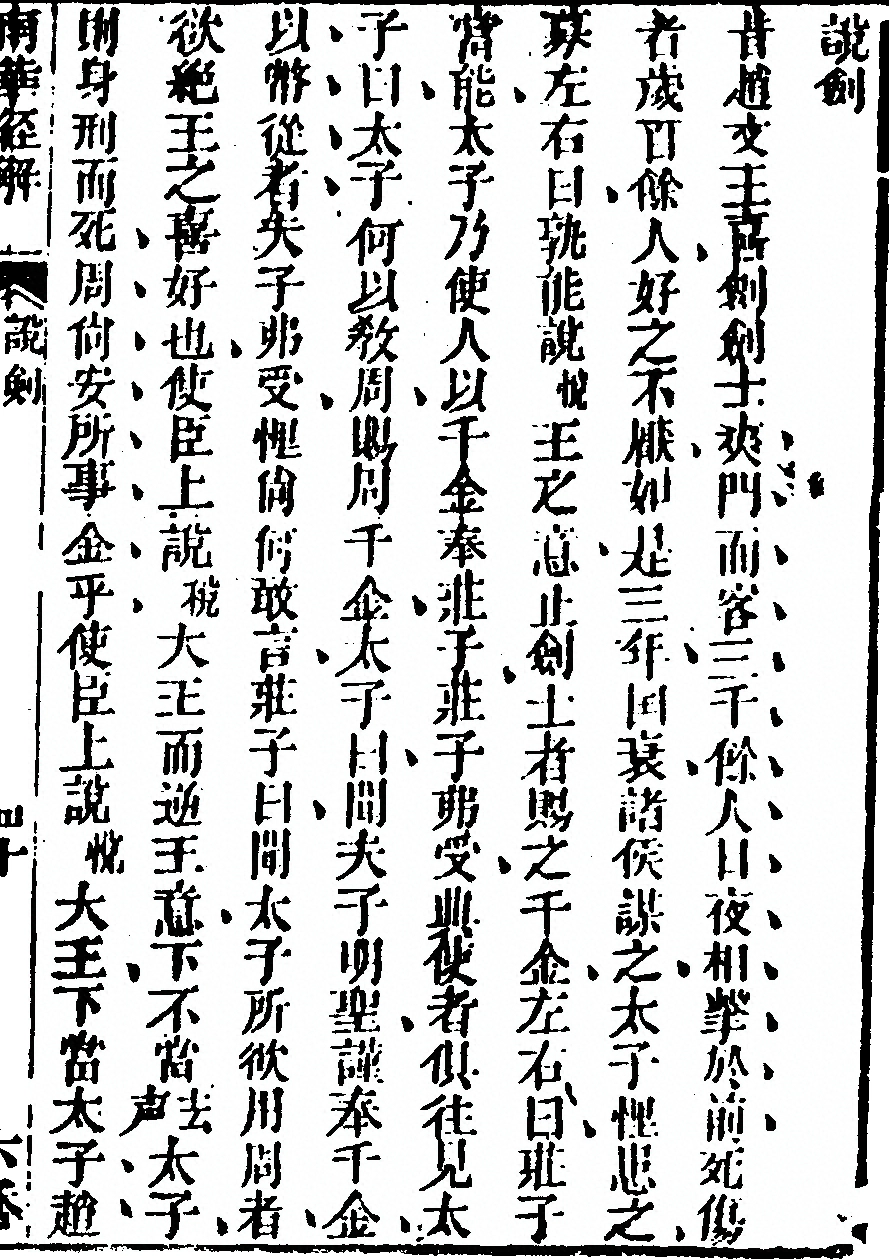 說劍
昔趙文王喜劍劍士夾門而客三千餘人日夜相擊於前死傷
者歲百餘人好之不厭如是三年國衰諸侯謀之太子悝患之
募左右曰孰能說悅王之意止劍士者賜之千金左右曰莊子
當能太子乃使人以千金奉莊子莊子弗受與使者俱往見太
子曰太子何以教周賜周千金太子曰聞夫子明聖謹奉千金
以幣從者夫子弗受悝尚何敢言莊子曰聞太子所欲用周者
欲絕王之喜好也使臣上說稅大王而逆王意下不當去声太子
則身刑而死周尚安所事金乎使臣上說悅大王下當太子趙
南華經解
說劍
四十